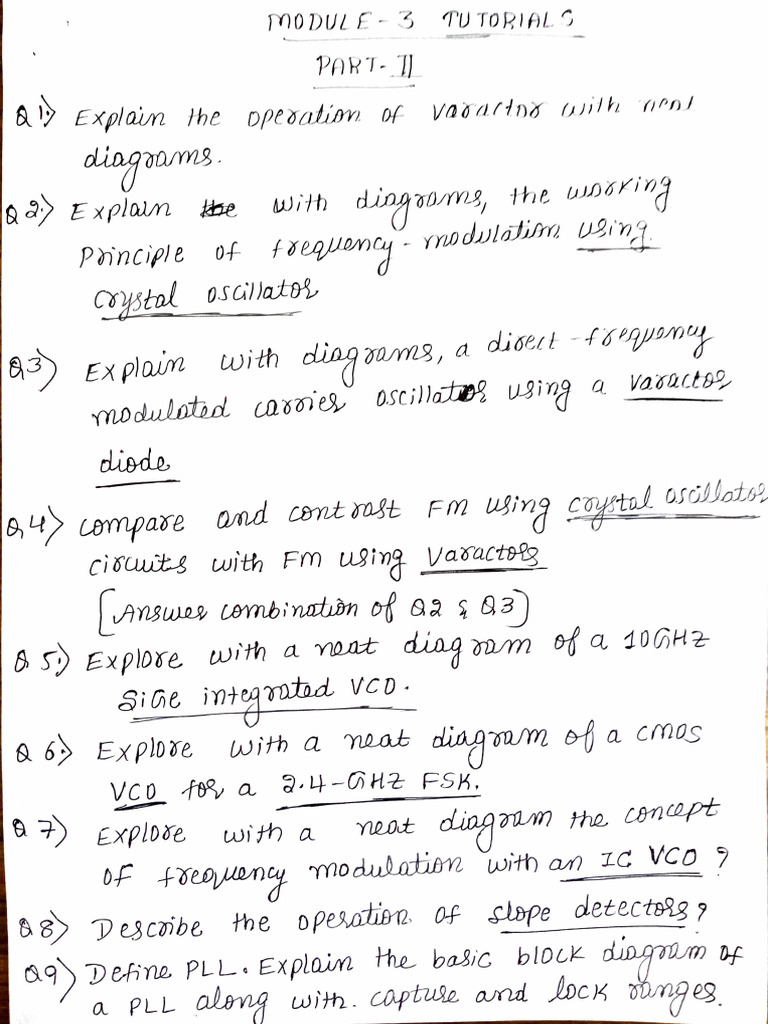 MODULE-3 TUTORIALS
PART-II
Q1) Explain the operation of varactor with neat
diagrams.
Q2) Explain with diagrams, the working
Principle of frequency-modulation using
crystal oscillator
Q3) Explain with diagrams, a direct-frequency
modulated carrier oscillator using a varactor
diode
Q4) compare and contrast FM using crystal oscillator
circuits with FM using Varactors
[Answer combination of Q2 & Q3]
Q5) Explore with a neat diagram of a 10GHz
SiGe integrated VCO.
Q6) Explore with a neat diagram of a CMOS
VCO for a 2.4-GHZ FSK.
Q7) Explore with a neat diagram the concept
of frequency modulation with an IC VCO?
Q8) Describe the operation of slope detectors?
Q9) Define PLL. Explain the basic block diagram of
a PLL along with. capture and lock ranges.